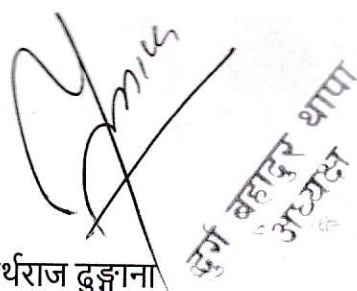 र्थराज ढुङ्गाना
दुर्ग बहादुर थापा
अध्यक्ष